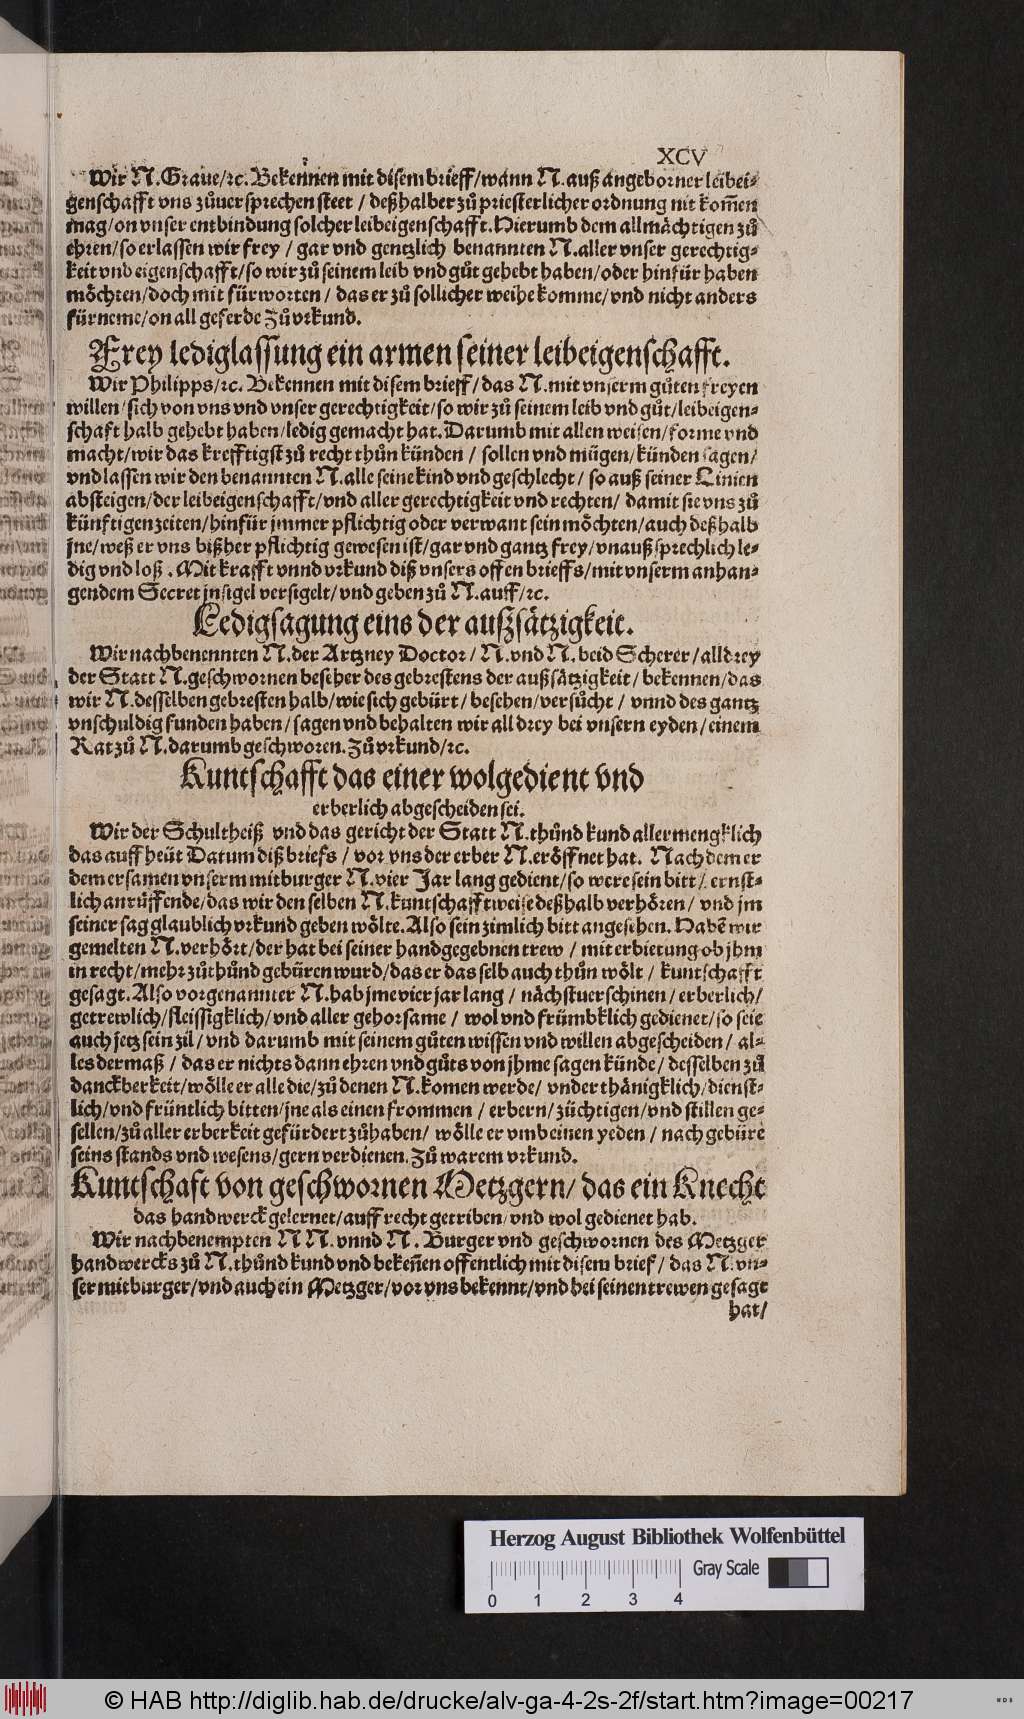 XCV
Wir N. Graue/ꝛc. Bekennen mit disem brieff/wann N. auß angeborner leibei-
genschafft vns zůuersprechen steet / deßhalber zů priesterlicher ordnung nit kom̄en
mag/on vnser entbindung solcher leibeigenschafft. Hierumb dem allmächtigen zů
ehren/so erlassen wir frey / gar vnd gentzlich benannten N. aller vnser gerechtig-
keit vnd eigenschafft/so wir zů seinem leib vnd gůt gehebt haben/oder hinfür haben
möchten/doch mit fürworten / das er zů sollicher weihe komme/vnd nicht anders
fürneme/on all geferde Zů vrkund.
Frey lediglassung ein armen seiner leibeigenschafft.
Wir Philipps/ꝛc. Bekennen mit disem brieff/ das N. mit vnserm gůten freyen
willen/sich von vns vnd vnser gerechtigkeit/so wir zů seinem leib vnd gůt/leibeigen-
schaft halb gehebt haben/ledig gemacht hat. Darumb mit allen weisen/forme vnd
macht/wir das krefftigst zů recht thůn künden / sollen vnd mügen/künden sagen/
vnd lassen wir den benannten N. alle seine kind vnd geschlecht / so auß seiner Linien
absteigen/der leibeigenschafft/vnd aller gerechtigkeit vnd rechten/ damit sie vns zů
künftigen zeiten/hinfür jmmer pflichtig oder verwant sein möchten/auch deßhalb
jne/weß er vns bißher pflichtig gewesen ist/gar vnd gantz frey/vnaußsprechlich le-
dig vnd loß. Mit krafft vnnd vrkund diß vnsers offen brieffs/mit vnserm anhan-
gendem Secret jnsigel versigelt/vnd geben zů N. auff/ꝛc.
Ledigsagung eins der außsätzigkeit.
Wir nachbenennten N. der Artzney Doctor/ N. vnd N. beid Scherer/alldrey
der Statt N. geschwornen beseher des gebrestens der außsätzigkeit/ bekennen/das
wir N. desselben gebresten halb/wie sich gebürt/ besehen/versůcht / vnnd des gantz
vnschuldig funden haben/sagen vnd behalten wir all drey bei vnsern eyden/einem
Rat zů N. darumb geschworen. Zů vrkund/ꝛc.
Kuntschafft das einer wolgedient vnd
erberlich abgescheiden sei.
Wir der Schultheiß vnd das gericht der Statt N. thůnd kund allermengklich
das auff heüt Datum diß briefs / vor vns der erber N. eröffnet hat. Nach dem er
dem ersamen vnserm mitburger N. vier Jar lang gedient/so were sein bitt/ ernst-
lich anrůffende/das wir den selben N. kuntschafft weise deßhalb verhören/ vnd jm
seiner sag glaublich vrkund geben wölte. Also sein zimlich bitt angesehen. Habē wir
gemelten N. verhört/der hat bei seiner handgegebnen trew / mit erbietung ob jhm
in recht/mehr zůthůnd gebüren wurd/das er das selb auch thůn wölt / kuntschafft
gesagt. Also vorgenannter N. hab jme vier jar lang / nächstuerschinen/erberlich/
getrewlich/fleissigklich/vnd aller gehorsame / wol vnd frümbklich gedienet/so seie
auch jetz sein zil/vnd darumb mit seinem gůten wissen vnd willen abgescheiden / al-
les dermaß / das er nichts dann ehren vnd gůts von jhme sagen künde/ desselben zů
danckberkeit/wölle er alle die/zů denen N. komen werde/ vnderthänigklich/dienst-
lich/vnd früntlich bitten/jne als einen frommen / erbern/züchtigen/vnd stillen ge-
sellen/zů aller erberkeit gefürdert zůhaben/ wölle er vmb einen yeden / nach gebüre
seins stands vnd wesens/gern verdienen. Zů warem vrkund.
Kuntschaft von geschwornen Metzgern/ das ein Knecht
das handwerck gelernet/auff recht getriben/vnd wol gedienet hab.
Wir nachbenempten N N. vnnd N. Burger vnd geschwornen des Metzger
handwercks zů N. thůnd kund vnd beken̄en offentlich mit disem brief/ das N. vn-
ser mitburger/vnd auch ein Metzger/vor vns bekennt/vnd bei seinen trewen gesagt
hat/
Herzog August Bibliothek Wolfenbüttel
Gray Scale
0 1 2 3 4
© HAB http://diglib.hab.de/drucke/alv-ga-4-2s-2f/start.htm?image=00217